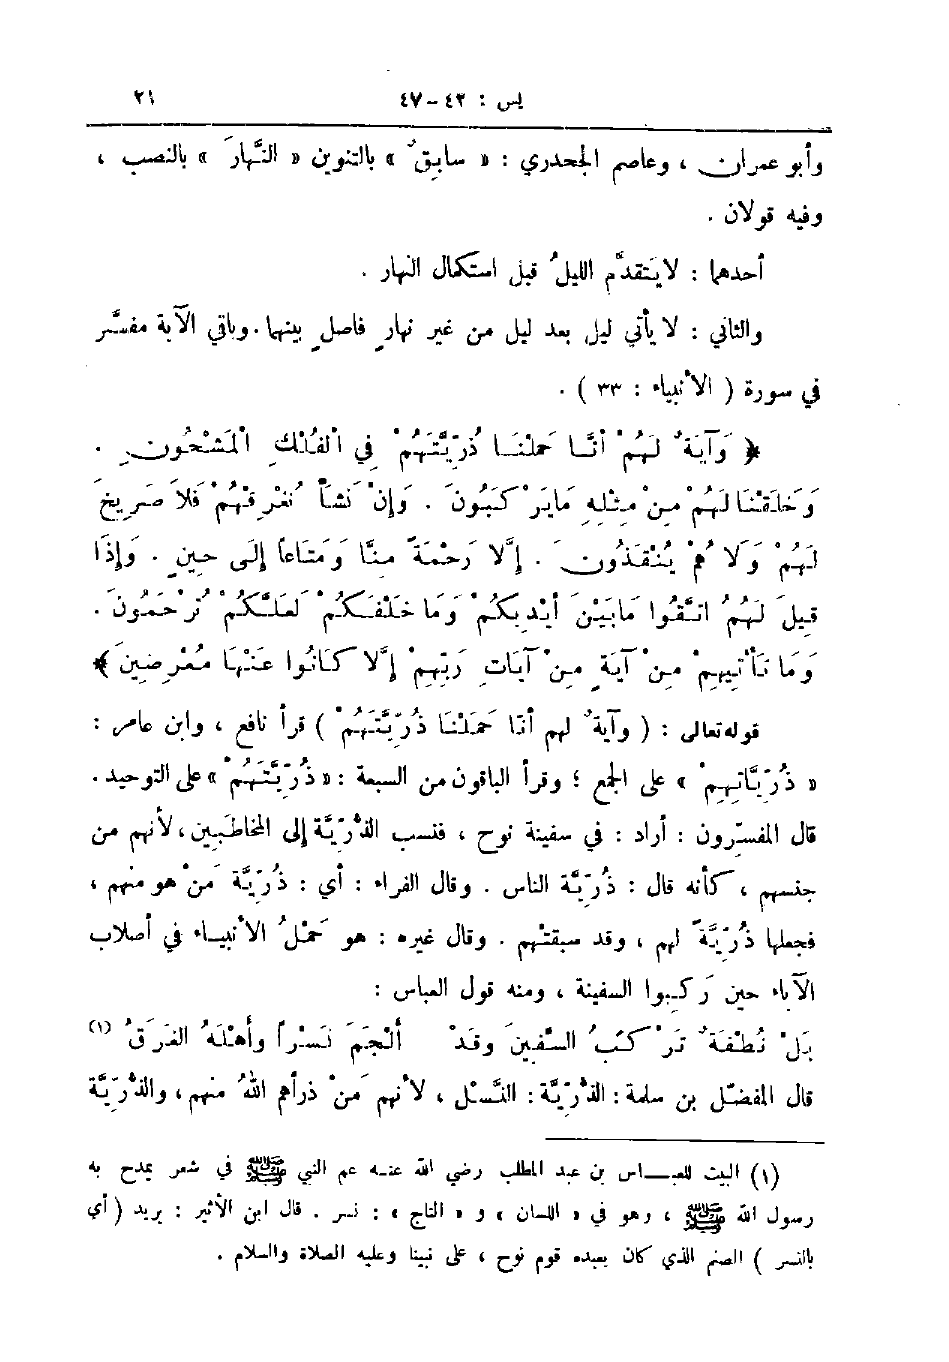 يس : ٤٢ – ٤٧ ٢١
وأبو عمران ، وعاصم الجحدري : « سابقٌ » بالتنوين « النَّهارَ » بالنصب ،
وفيه قولان .
أحدهما : لا يَتقدَّم الليلُ قبل استكمال النهار .
والثاني : لا يأتي ليل بعد ليل من غير نهارٍ فاصلٍ بينهما . وباقي الآية مفسَّر
في سورة ( الأنبياء : ٣٣ ) .
﴿ وَآيَةٌ لَهُمْ أَنَّا حَمَلْنَا ذُرِّيَّتَهُمْ فِي الْفُلْكِ الْمَشْحُونِ .
وَخَلَقْنَا لَهُمْ مِنْ مِثْلِهِ مَايَرْكَبُونَ . وَإِنْ نَشَأْ نُغْرِقْهُمْ فَلَا صَرِيخَ
لَهُمْ وَلَا هُمْ يُنْقَذُونَ . إِلَّا رَحْمَةً مِنَّا وَمَتَاعاً إِلَى حِينٍ . وَإِذَا
قِيلَ لَهُمُ اتَّقُوا مَابَيْنَ أَيْدِيكُمْ وَمَا خَلْفَكُمْ لَعَلَّكُمْ تُرْحَمُونَ .
وَمَا تَأْتِيهِمْ مِنْ آيَةٍ مِنْ آيَاتِ رَبِّهِمْ إِلَّا كَانُوا عَنْهَا مُعْرِضِينَ ﴾
قوله تعالى : ( وآيةٌ لهم أنَّا حَمَلْنَا ذُرِّيَّتَهُمْ ) قرأ نافع ، وابن عامر :
« ذُرِّيَّاتِهِمْ » على الجمع ؛ وقرأ الباقون من السبعة : « ذُرِّيَّتَهُمْ » على التوحيد .
قال المفسِّرون : أراد : في سفينة نوح ، فنسب الذُّرِّيَّة إلى المخاطَبين ، لأنهم من
جنسهم ، كأنه قال : ذُرِّيَّة الناس . وقال الفراء : أي : ذُرِّيَّة مَنْ هو منهم ،
فجعلها ذُرِّيَّةً لهم ، وقد سبقتْهم . وقال غيره : هو حَمْلُ الأنبياء في أصلاب
الآباء حين رَكِبوا السفينة ، ومنه قول العباس :
بَلْ نُطْفَةٌ تَرْكَبُ السَّفِينَ وقَدْ أَلْجَمَ نَسْراً وأَهْلَهُ الغَرَقُ (١)
قال المفضّل بن سلمة : الذُّرِّيَّة : النَّسْل ، لأنهم مَنْ ذرأهم اللهُ منهم ، والذُّرِّيَّة
(١) البيت للعباس بن عبد المطلب رضي الله عنه عم النبي ﷺ في شعر يمدح به
رسول الله ﷺ ، وهو في « اللسان » و « التاج » : نسر . قال ابن الأثير : يريد ( أي
بالنسر ) الصنم الذي كان يعبده قوم نوح ، على نبينا وعليه الصلاة والسلام .